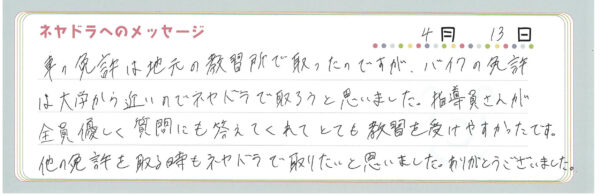 ネヤドラへのメッセージ
4月 13日
車の免許は地元の教習所で取ったのですが、バイクの免許
は大学から近いのでネヤドラで取ろうと思いました。指導員さんが
全員優しく質問にも答えてくれてとても教習を受けやすかったです。
他の免許を取る時もネヤドラで取りたいと思いました。ありがとうございました。